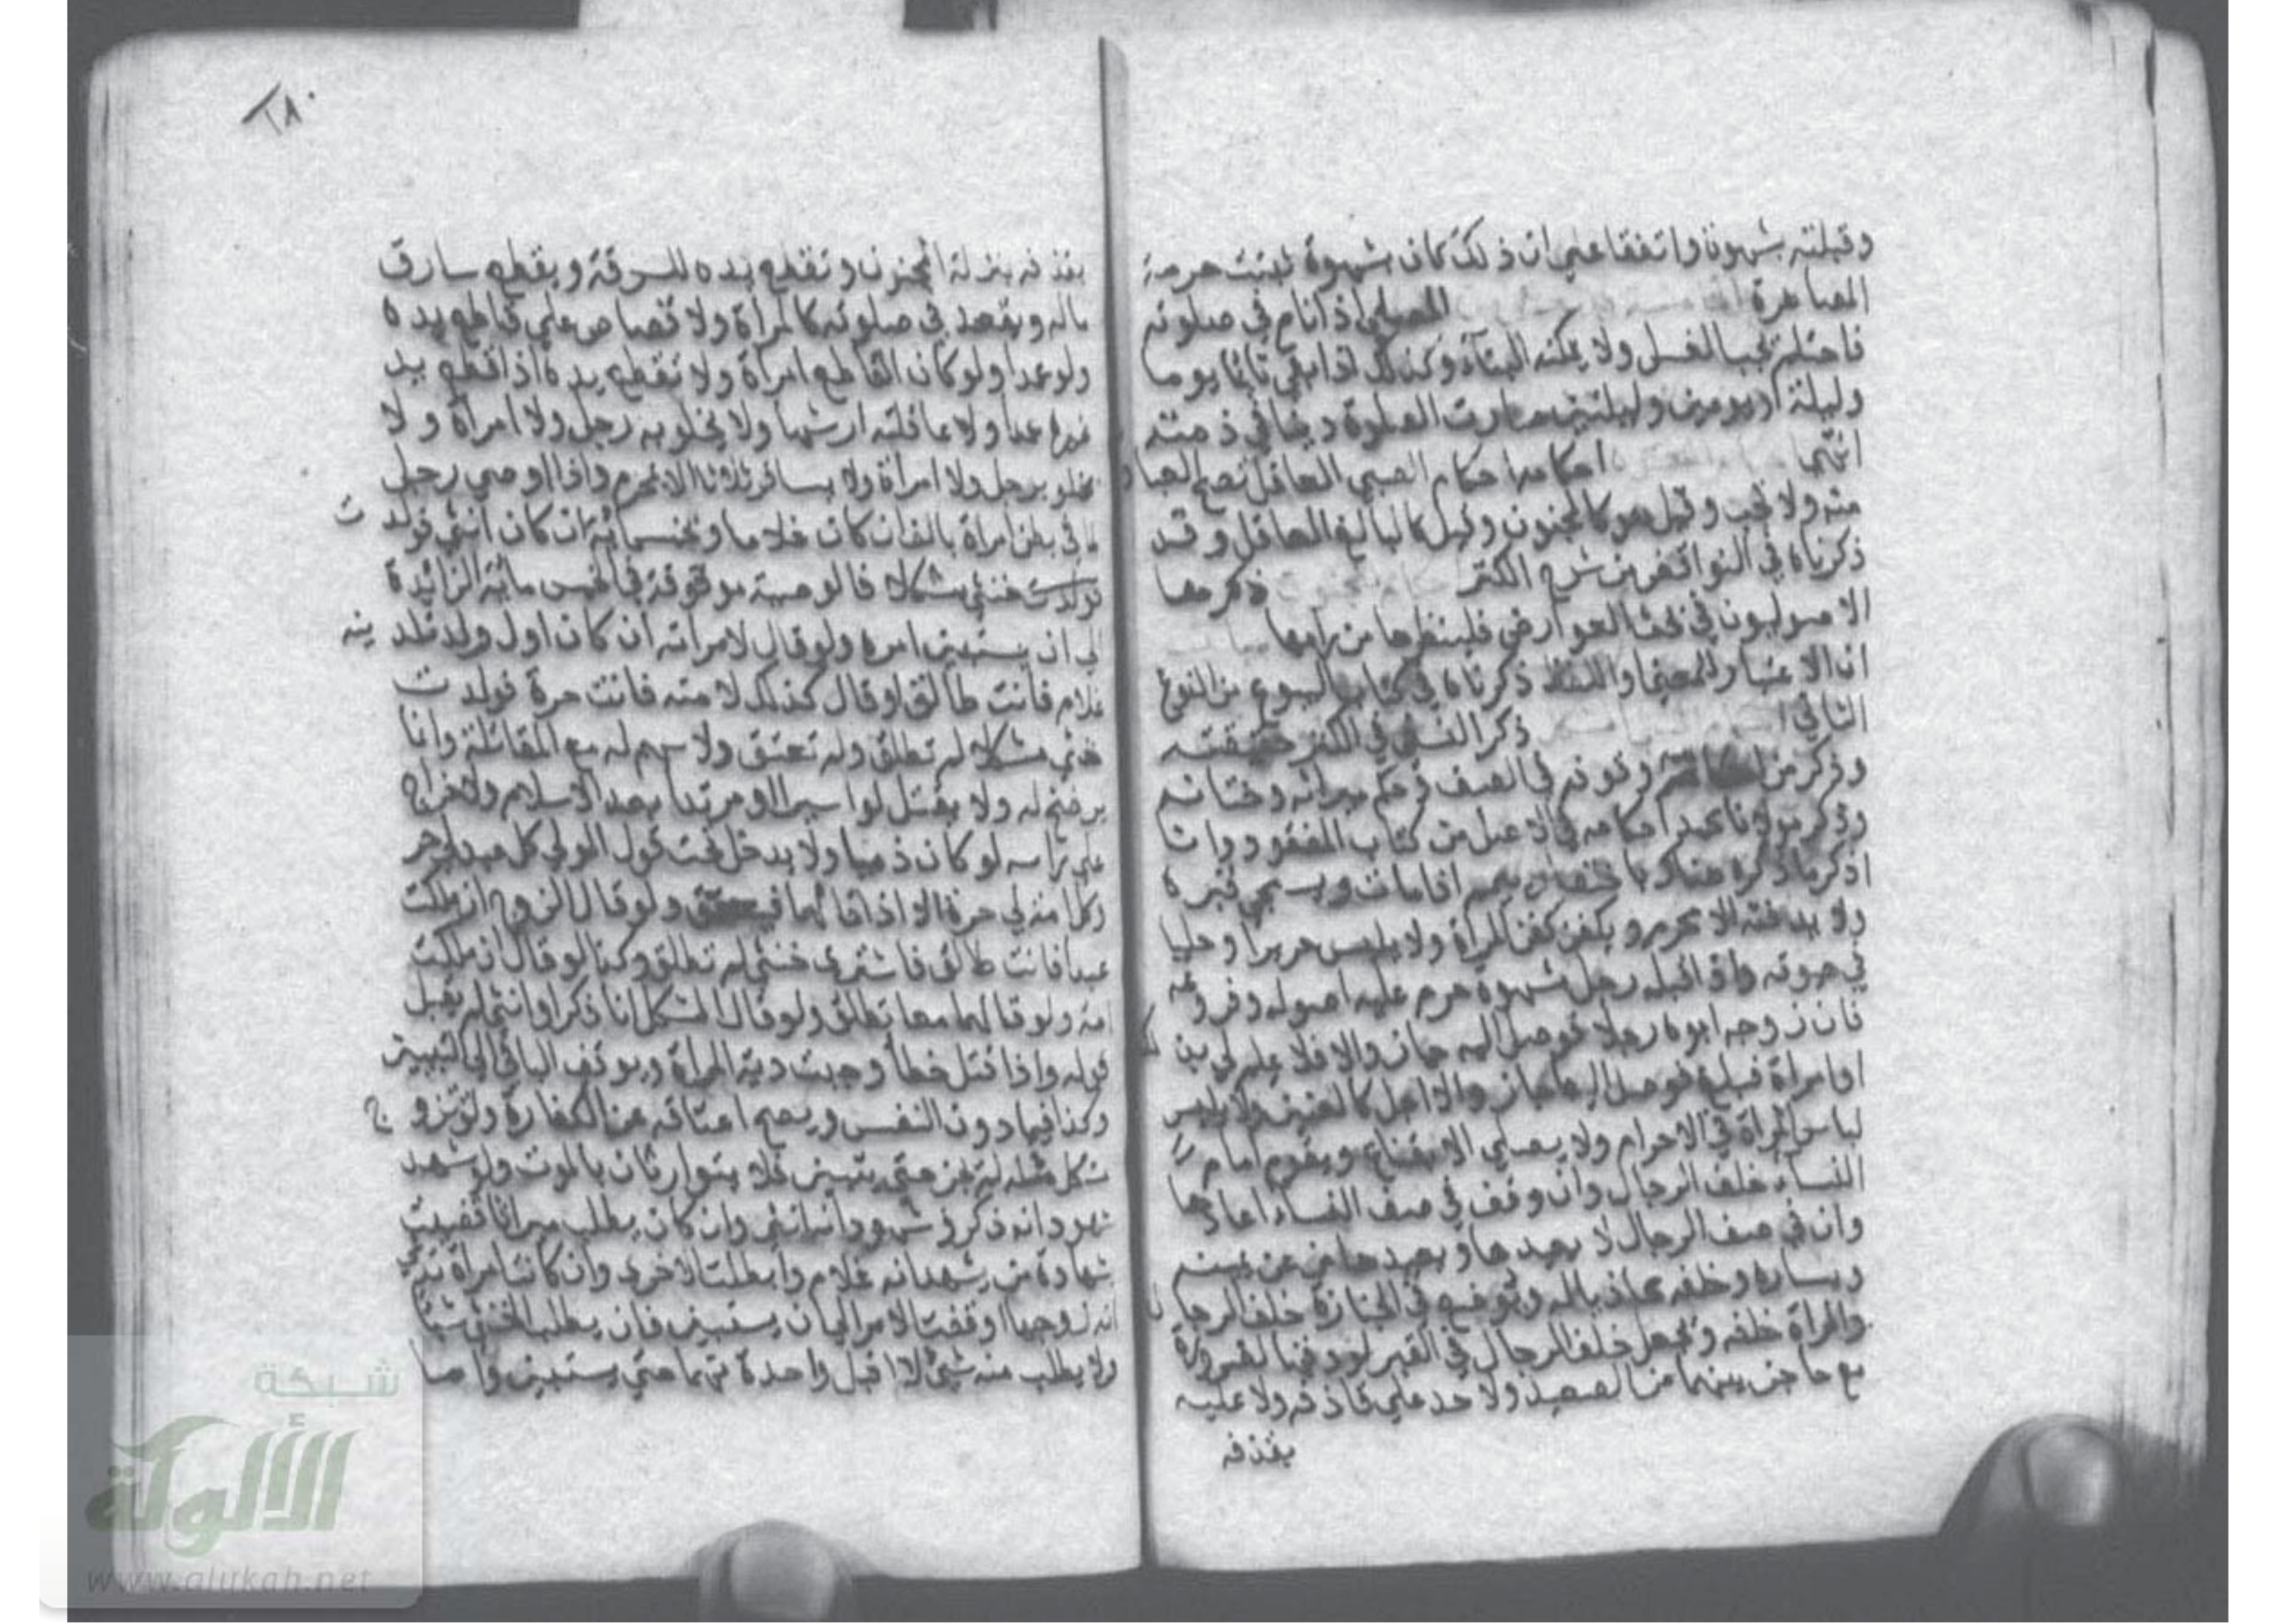 وقبلته بشهوة واتفقا على ان ذلك كان بشهوة تثبت حرمة
المصاهرة المصلي اذا نام في صلوته
فاحتلم يجب الغسل ولا يمكنه البناء وكذلك اذا بقي نائما يوما
وليلة او يومين وليلتين صارت الصلوة دينا في ذمته
انتهى احكامه احكام الصبي العاقل تصح العبادات
منه ولا تجب وقيل هو كالمجنون وقيل كالبالغ العاقل وقد
ذكرناه في النواقض من شرح الكنز ذكرها
الاصوليون في بحث العوارض فلينظرها من رامها
ان الاعتبار للمعنى او اللفظ ذكرناه في كتاب البيوع من النوع
الثاني ذكر النسفي في الكنز حقيقته
وذكر من وقوفه في الصف وحكم ميراثه وختانه
وذكر مولانا محمد احكامه في الاصل من كتاب المفقود وانا
اذكر ما ذكره هنالك باختصار ييمم اذا مات ويسجى قبره
ولا يدخله الا محرم ويكفن كفن المرأة ولا يلبس حريرا وحليا
في حياته واذا قبله رجل بشهوة حرم عليه اصوله وفروعه
فان زوجه ابوه رجلا فوصل اليه جاز والا فلا علم لي بذلك
او امرأة فبلغ فوصل اليها جاز والا اجل كالعنين ولا يلبس
لباس المرأة في الاحرام ولا يصلي الا بقناع ويقوم امام
النساء خلف الرجال وان وقف في صف النساء اعادها
وان في صف الرجال لا يعيدها ويعيدها من عن يمينه
ويساره وخلفه محاذيا له ويوضع في الجنازة خلف الرجال
والمرأة خلفه ويجعل خلف الرجال في القبر لو دفنا لضرورة
مع حاجز بينهما من الصعيد ولا حد على قاذفه ولا عليه
بقذفه
٢٨٠
بقذفه بمنزلة المجنون وتقطع يده للسرقة ويقطع سارق
ماله ويقعد في صلوته كالمرأة ولا قصاص على قاطع يده
ولو عمدا ولو كان القاطع امرأة ولا تقطع يده اذا قطع يد
غيره عمدا ولا عاقلته ارشها ولا يخلو به رجل ولا امرأة ولا
يخلو برجل ولا امرأة ولا يسافر ثلاثا الا بمحرم واذا اوصى رجل
لما في بطن امرأة بالف ان كان غلاما وبخمسمائة ان كان انثى فولدت
فولدت خنثى مشكلا فالوصية موقوفة في الخمس مائة الزائدة
الى ان يستبين امره ولو قال لامرأته ان كان اول ولد تلدينه
غلام فانت طالق او قال كذلك لامته فانت حرة فولدت
خنثى مشكلا لم تطلق ولم تعتق ولا سهم له مع المقاتلة وانا
يرضخ له ولا يقتل لو اسيرا او مرتدا بعد الاسلام ولا خراج
على رأسه لو كان ذميا ولا يدخل تحت قول المولى كل عبد لي حر
وكل امة لي حرة الا اذا قالهما فيعتق ولو قال الزوج ان ملكت
عبدا فانت طالق فاشترى خنثى لم تطلق وكذا لو قال ان ملكت
امة ولو قالهما معا تطلق ولو قال المشكل انا ذكر او انثى لم يقبل
قوله واذا قتل خطأ وجبت دية المرأة ويوقف الباقي الى التبيين
وكذا فيما دون النفس ويصح اعتاقه عن الكفارة ولو تزوج
مشكل مثله لم يجز حتى يتبين فلا يتوارثان بالموت ولو شهد
شهود انه ذكر وشهود انه انثى وان كان يطلب ميراثا قضيت
بشهادة من يشهد انه غلام وابطلت الاخرى وان كانت امرأة تدعي
انه زوجها اوقفت الامر الى ان يستبين فان يطلب الخنثى شيئا
ولا يطلب منه شيئ لا اقبل واحدة منهما حتى يستبين واما
شبكة
الألوكة
www.alukah.net